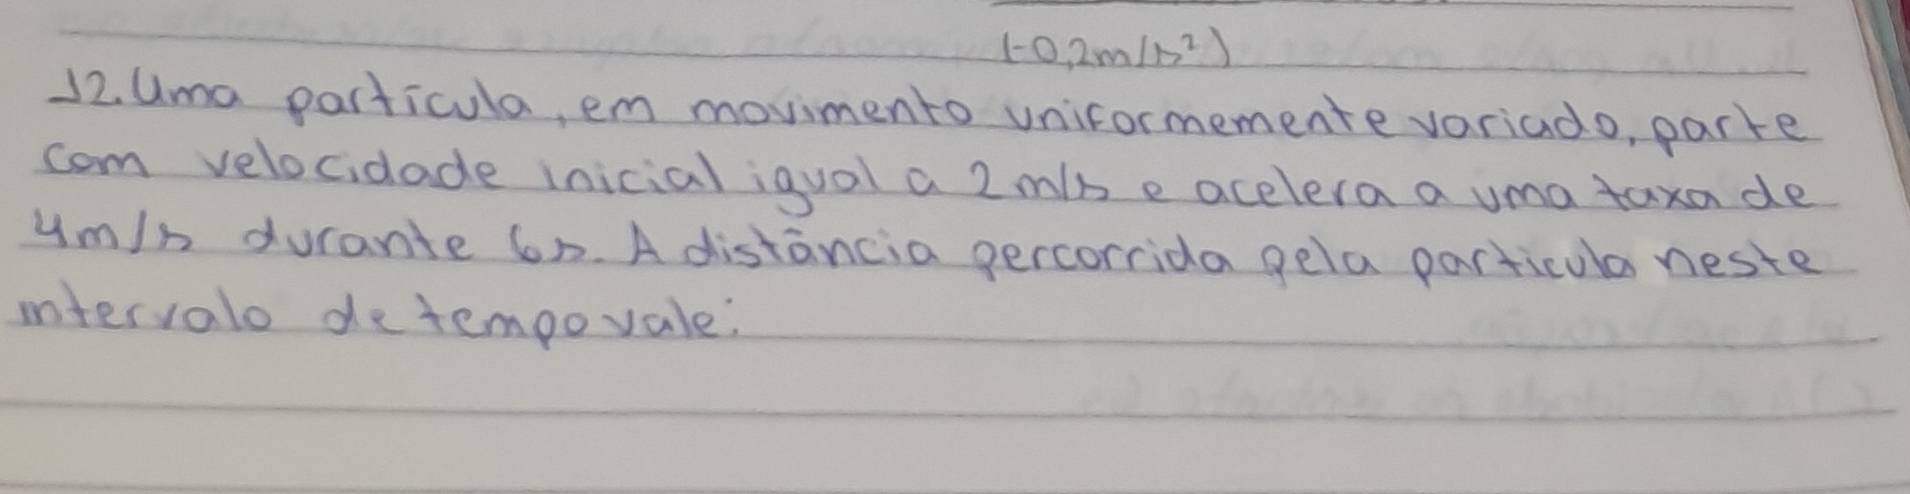 (-0,2m/s²)
12. Uma partícula, em movimento uniformemente variado, parte
com velocidade inicial igual a 2 m/s e acelera a uma taxa de
4m/s durante 6s. A distância percorrida pela particula neste
intervalo de tempo vale: